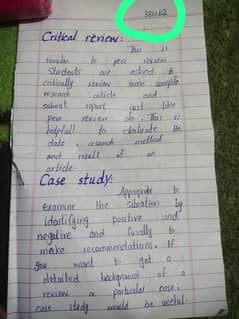 Critical review:
This is
similar to peer review
Students are asked to
critically review some sample
research article and
submit report just like
peer review do. This is
helpfull to evaluate the
data, research method
and result of an
article.
Case study:
Appropriate to
examine the situation by
identifying positive and
negative and finally to
make recommendations. If
you want to get a
detailed background of a
review a particular case,
case study would be useful.